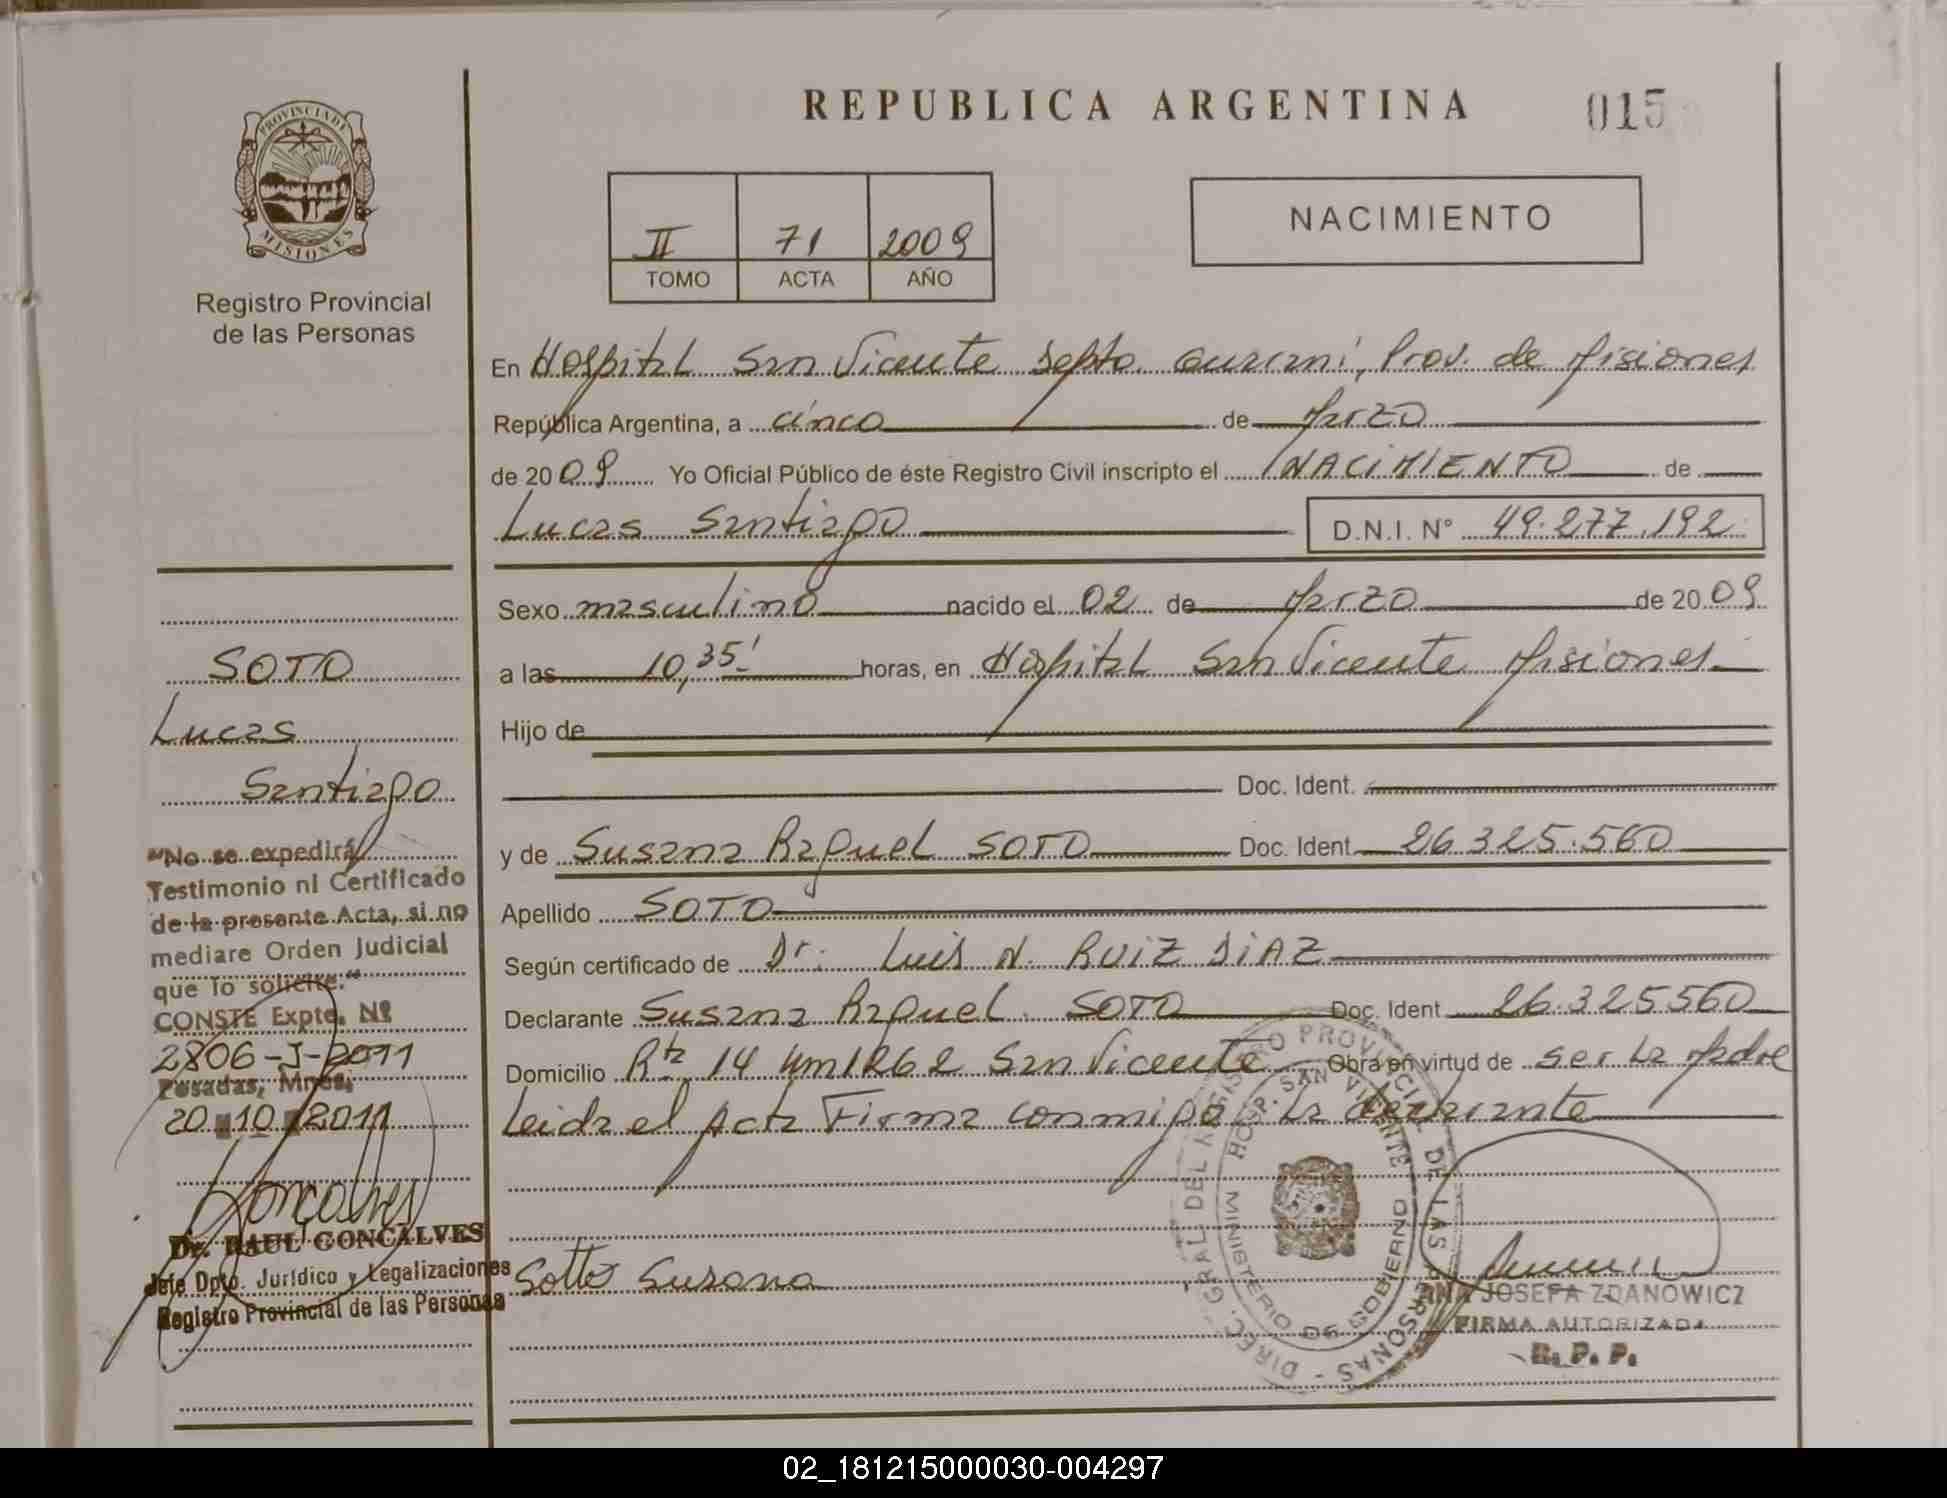 REPUBLICA ARGENTINA
015
PROVINCIA DE
MISIONES
Registro Provincial
de las Personas
II 71 2009
TOMO ACTA AÑO
NACIMIENTO
En Hospital San Vicente Depto. Guarani, Prov. de Misiones
República Argentina, a cinco de Marzo
de 2009 Yo Oficial Público de éste Registro Civil inscripto el NACIMIENTO de
Lucas Santiago D.N.I. N° 49.277.192
Sexo masculino nacido el 02 de Marzo de 2009
a las 10,35' horas, en Hospital San Vicente Misiones
Hijo de
Doc. Ident.
y de Susana Raquel SOTO Doc. Ident 26.325.560
Apellido SOTO
Según certificado de Dr. Luis N. RUIZ DIAZ
Declarante Susana Raquel SOTO Doc. Ident 26.325560
Domicilio Rta 14 Km1262 San Vicente Obra en virtud de ser la Madre
Leida el Acta Firma conmigo la declarante
Sotto Susana
DIREC. GRAL DEL REGISTRO PROVINCIAL DE LAS PERSONAS -
HOSP. SAN VICENTE
MINISTERIO DE GOBIERNO
ANA JOSEFA ZDANOWICZ
FIRMA AUTORIZADA
R. P. P.
SOTO
Lucas
Santiago
"No se expedirá
Testimonio ni Certificado
de la presente Acta, si no
mediare Orden Judicial
que lo solicite."
CONSTE Expte. Nº
2806-J-2011
Posadas, Mnes;
20 10 2011
Goncalves
Dr. RAUL GONCALVES
Jefe Dpto. Jurídico y Legalizaciones
Registro Provincial de las Personas
02_181215000030-004297